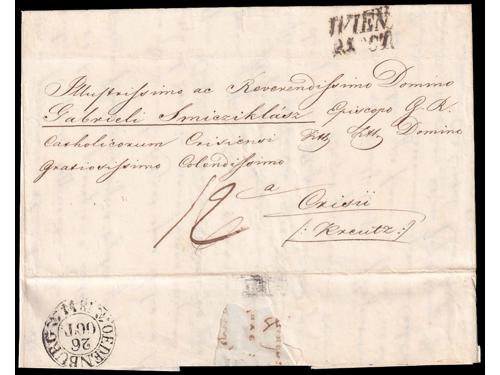 WIEN
Illustrissimo ac Reverendissimo Domino
Gabrieli Smicziklász Episcopo G. R.
Catholicorum Crisiensi Ttt. Ttt. Domino
Gratiosissimo Colendissimo
a
12
Crisii
/: Kreutz :/
OEDENBURG
26
OCT